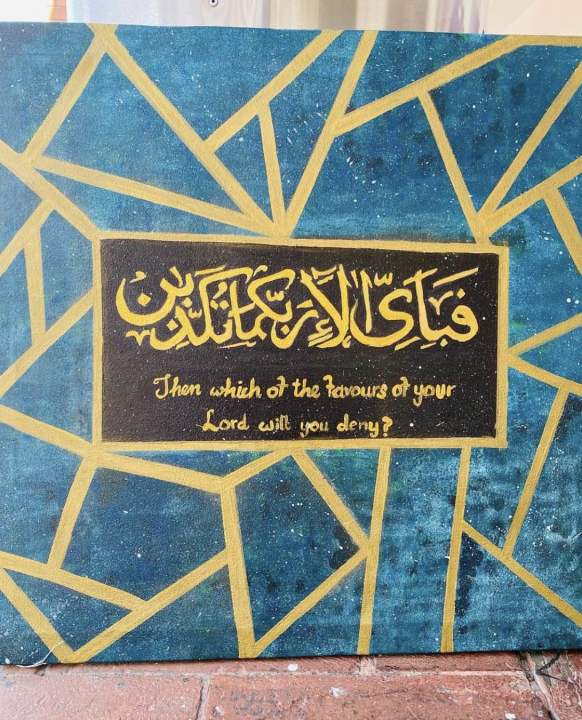 فَبِأَىِّ آلَآءِ رَبِّكُمَا تُكَذِّبٰنِ
Then which of the favours of your
Lord will you deny?